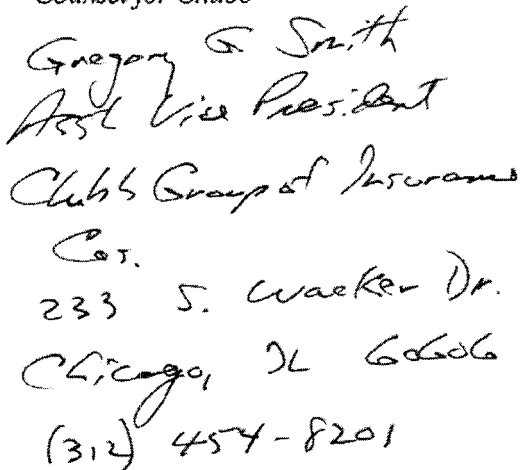 Counsel for Chubb
Gregory G Smith
Asst Vice President
Chubb Group of Insurance
Cos.
233 S. Wacker Dr.
Chicago, IL 60606
(312) 454-8201